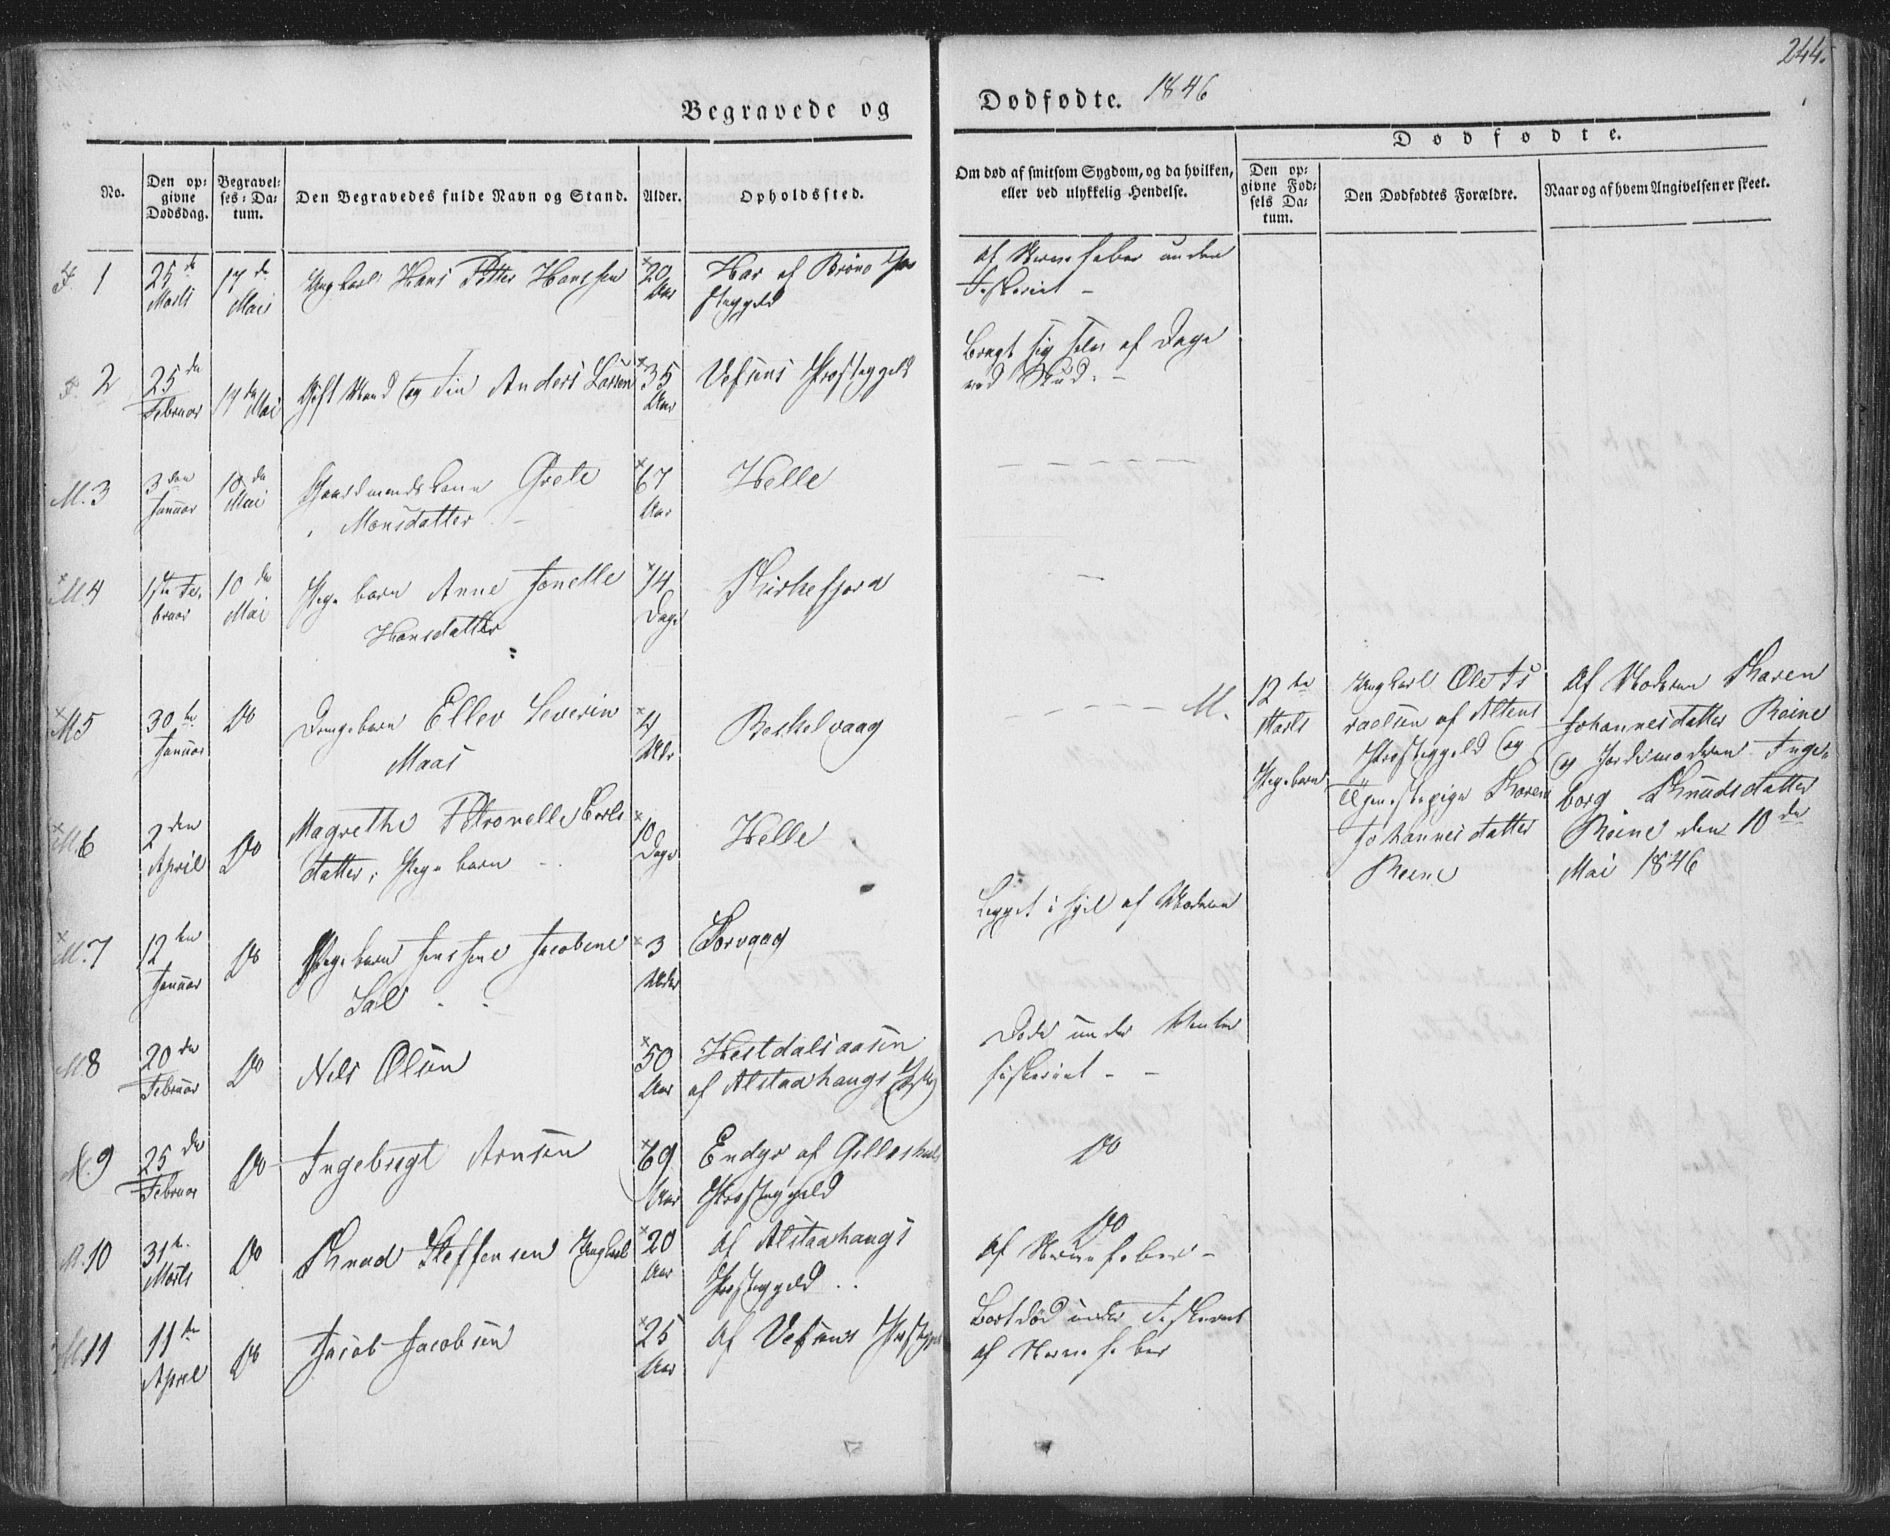 244.
Begravede og Dødfødte. 1846
Dødfødte.
No.
Den opgivne Dødsdag.
Begravelses-Datum.
Den Begravedes fulde Navn og Stand.
Alder.
Opholdssted.
Om død af smitsom Sygdom, og da hvilken,
eller ved ulykkelig Hendelse.
Den opgivne Fødsels Datum.
Den Dødfødtes Forældre.
Naar og af hvem Angivelsen er skeet.
F. 1
25de
Marts
17de
Mai
Ungkarl Hans Petter Hanssen
20
Aar
af Brønø
af Nervefeber under
Fiskeriet -
F. 2
25de
Februar
17de Mai
Gift Mand Anders Larsen
35
Aar
Vefsens Præstegjeld
Bragt sig selv af Dage
ved Skud. -
M. 3
3den
Januar
10de
Mai
Gaardmandskone Grete
Monsdatter
67
Aar
Helle
M. 4
1ste Fe-
bruar
10de
Mai
Pigebarn Anne Jonelle
Hansdatter
14
Dage
Kirkefjord
M. 5
30te
Januar
Do
Drengebarn Ellev Severin
Maas
4
Uger
Beskelvaag
M.
12te
Marts
Pigebarn
Ungkarl Ole Is
raelsen af Altens
Præstegjeld og
Tjenestepige Karen
Johannesdatter
Reine
Af Moderen Karen
Johannesdatter Reine
og Jordemoderen Inge-
borg Knudsdatter
Reine den 10de
Mai 1846
M. 6
2den
April
Do
Magrethe Petronelle Earls
datter, Pigebarn
10
Dage
Helle
M. 7
12te
Januar
Do
Pigebarn Jensine Jacobine
Sal
3
Sørvaag
Ligget ihjel af Moderen
M. 8
20de
Februar
Do
Nils Olsen
50
Aar
Hestdalsaasen
af Alstadhaugs
Døde under Vinter
fiskeriet -
M. 9
25de
Februar
Do
Ingebrigt Arnsen
69
Aar
af Gilleskaals
Præstegjeld
Do
M. 10
31te
Marts
Do
Knud Steffensen Ungkarl
20
Aar
af Alstadhaugs
Præstegjeld
Do
af Nervefeber -
M. 11
11te
April
Do
Jacob Jacobsen
25
Aar
af Vefsens
Bortdød under Fiskeriet
af Nervefeber